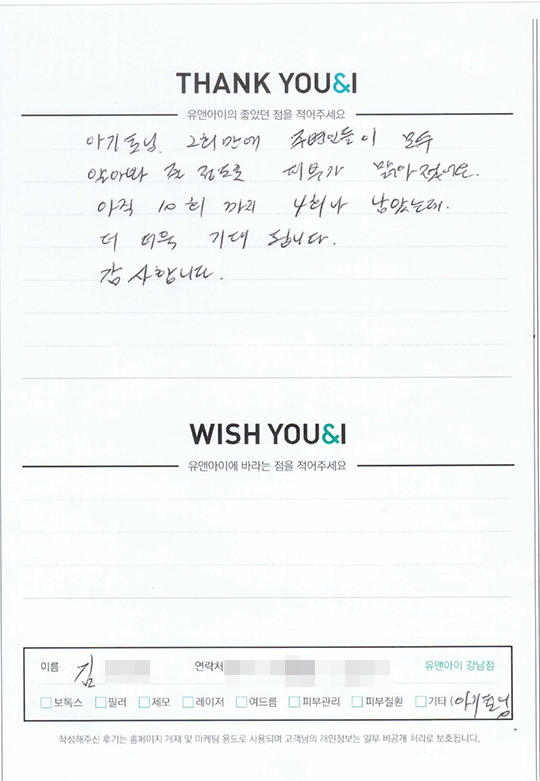 THANK YOU&I
유앤아이의 좋았던 점을 적어주세요
아기토닝. 2회만에 주변인들이 모두
알아봐 줄 정도로 피부가 맑아졌어요.
아직 10회 까지 4회나 남았는데.
더 더욱 기대 됩니다.
감사합니다.
WISH YOU&I
유앤아이에 바라는 점을 적어주세요
이름 김 연락처 유앤아이 강남점
보톡스 필러 제모 레이저 여드름 피부관리 피부질환 기타 (아기토닝)
작성해주신 후기는 홈페이지 게재 및 마케팅 용도로 사용되며 고객님의 개인정보는 일부 비공개 처리로 보호됩니다.